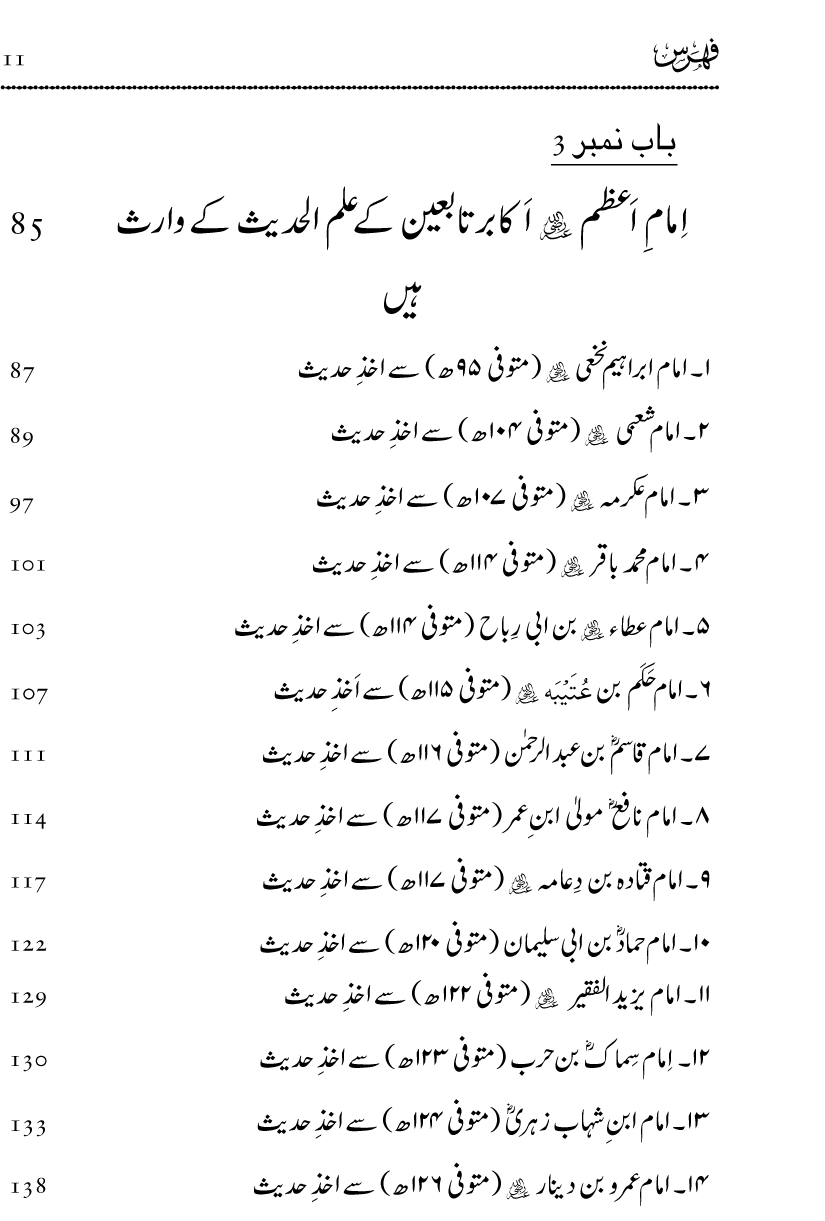 فہرس 11
باب نمبر 3
اِمامِ اَعظم رضی اللہ عنہ اَکابر تابعین کے علم الحدیث کے وارث 85
ہیں
۱۔ امام ابراہیم نخعی رضی اللہ عنہ (متوفی ۹۵ھ) سے اخذِ حدیث 87
۲۔ امام شعبی رضی اللہ عنہ (متوفی ۱۰۴ھ) سے اخذِ حدیث 89
۳۔ امام عکرمہ رضی اللہ عنہ (متوفی ۱۰۷ھ) سے اخذِ حدیث 97
۴۔ امام محمد باقر رضی اللہ عنہ (متوفی ۱۱۴ھ) سے اخذِ حدیث 101
۵۔ امام عطاء رضی اللہ عنہ بن ابی رِباح (متوفی ۱۱۴ھ) سے اخذِ حدیث 103
۶۔ امام حَکَم بن عُتَيْبَه رضی اللہ عنہ (متوفی ۱۱۵ھ) سے اَخذِ حدیث 107
۷۔ امام قاسمؓ بن عبد الرحمٰن (متوفی ۱۱۶ھ) سے اخذِ حدیث 111
۸۔ امام نافعؓ مولیٰ ابنِ عمر (متوفی ۱۱۷ھ) سے اخذِ حدیث 114
۹۔ امام قتادہ بن دِعامہ رضی اللہ عنہ (متوفی ۱۱۷ھ) سے اخذِ حدیث 117
۱۰۔ امام حمادؓ بن ابی سلیمان (متوفی ۱۲۰ھ) سے اخذِ حدیث 122
۱۱۔ امام یزید الفقیر رضی اللہ عنہ (متوفی ۱۲۲ھ) سے اخذِ حدیث 129
۱۲۔ اِمام سِماکؓ بن حرب (متوفی ۱۲۳ھ) سے اخذِ حدیث 130
۱۳۔ امام ابنِ شہاب زہریؓ (متوفی ۱۲۴ھ) سے اخذِ حدیث 133
۱۴۔ امام عمرو بن دینار رضی اللہ عنہ (متوفی ۱۲۶ھ) سے اخذِ حدیث 138